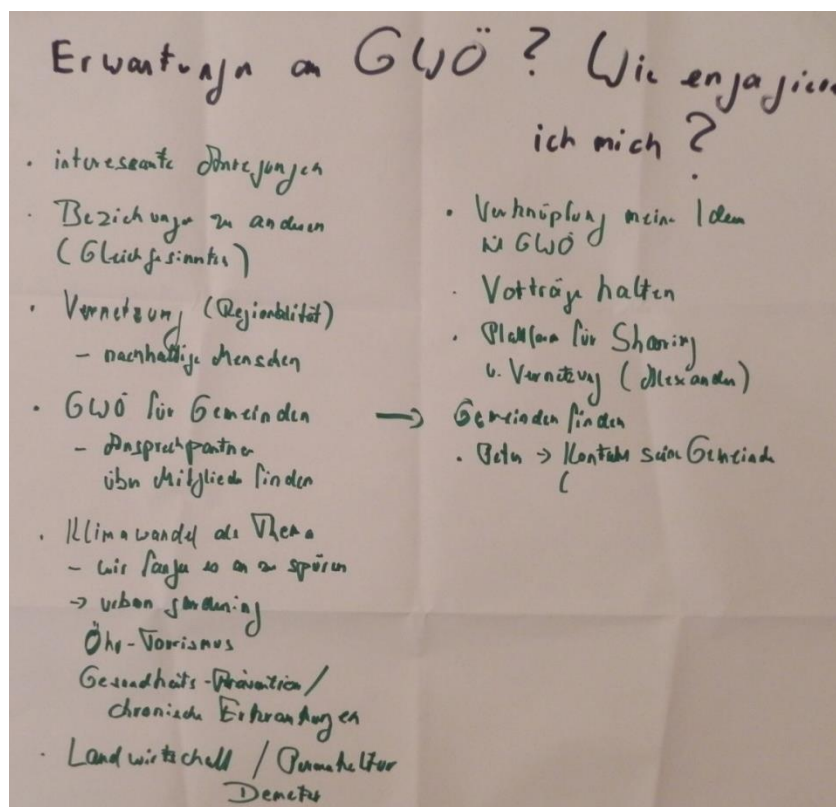 Erwartungen an GWÖ? Wie engagiere
ich mich?
· interessante Anregungen
· Beziehungen zu anderen
(Gleichgesinnten)
· Vernetzung (Regionalität)
- nachhaltige Menschen
· GWÖ für Gemeinden →
- Ansprechpartner
über Mitglieder finden
· Klimawandel als Thema
- wir fangen es an zu spüren
→ urban gardening
Öko-Tourismus
Gesundheits-Prävention/
chronische Erkrankungen
· Landwirtschaft / Permakultur
Demeter
· Verknüpfung meiner Ideen
mit GWÖ
· Vorträge halten
· Plattform für Sharing
u. Vernetzung (Alexander)
Gemeinden finden
· Peter → Kontakt seine Gemeinde
(